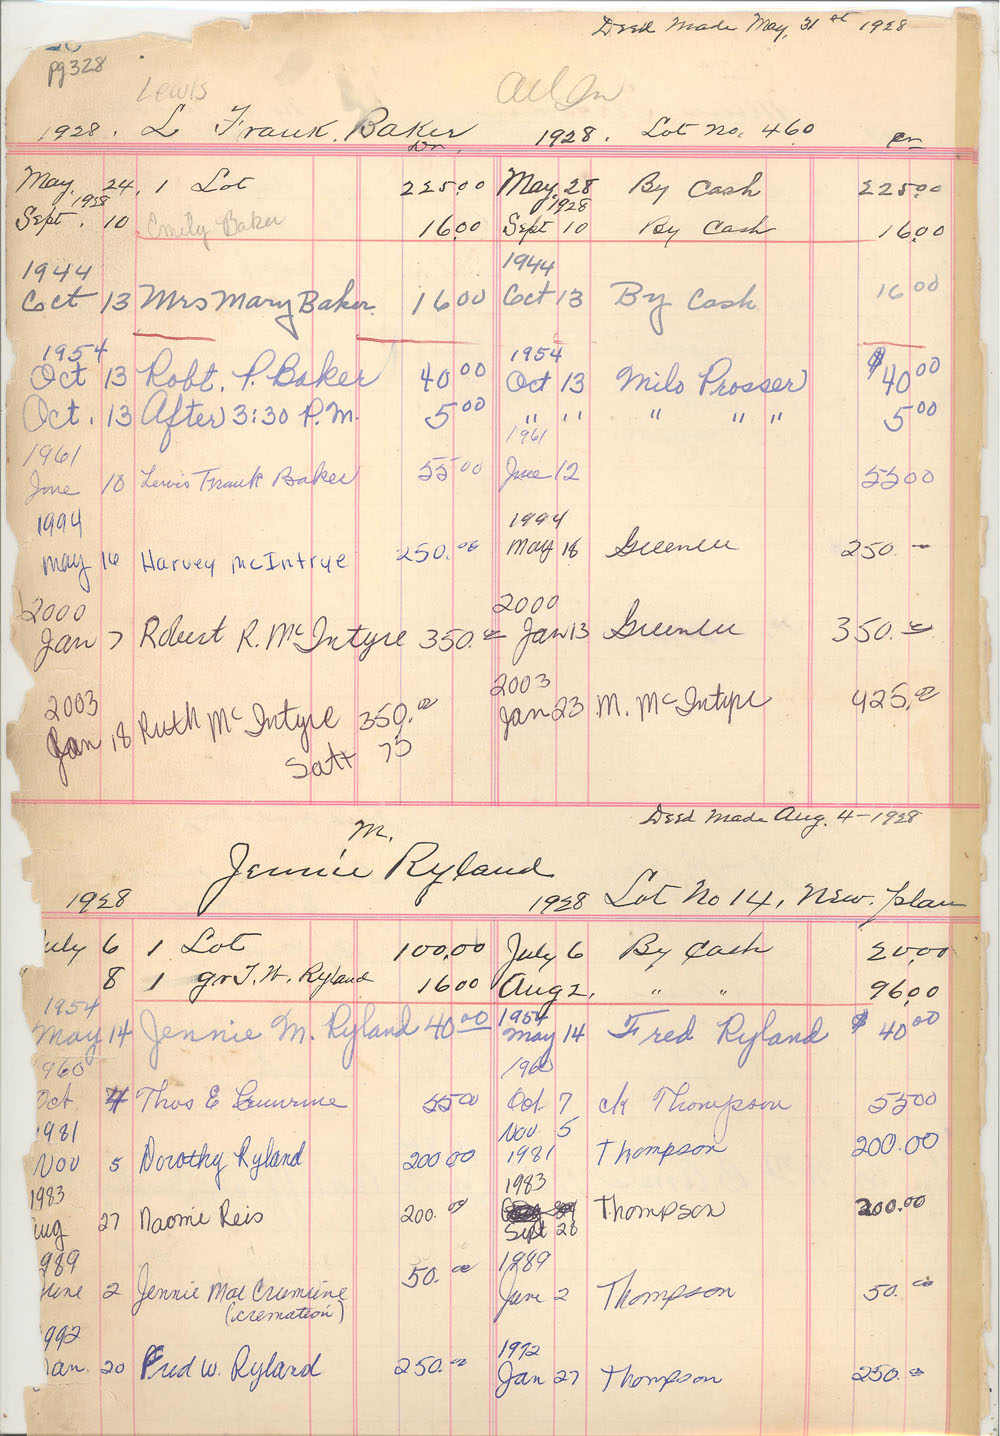 Deed Made May, 31 st 1928
pg 328
Lewis
1928. L Frank. Baker 1928. Lot No. 460
Dr. Cr
May, 24, 1 Lot 225.00 May 28 By Cash 225.00
1928 1928
Sept. 10 Emily Baker 16.00 Sept 10 By Cash 16.00
1944 1944
Oct 13 Mrs Mary Baker. 16 00 Oct 13 By Cash 16 00
1954 1954
Oct 13 Robt. P. Baker 40 00 Oct 13 Milo Prosser $40 00
Oct. 13 After 3:30 P.M. 5 00 " " " " " 5 00
1961 1961
June 10 Lewis Frank Baker 55 00 June 12 55 00
1994 1994
May 16 Harvey McIntrye 250. 00 May 18 Greenlee 250. —
2000 2000
Jan 7 Robert R. McIntyre 350. 00 Jan 13 Greenlee 350. 00
2003 2003
Jan 18 Ruth McIntyre 350. 00 Jan 23 M. McIntyre 425. 00
Satt 75
Deed Made Aug. 4 - 1928
M.
Jennie Ryland
1928 1928 Lot No 14, New. plan
uly 6 1 Lot 100.00 July 6 By Cash 20.00
8 1 gr T. W. Ryland 16 00 Aug 2, " " 96.00
1954 1954
May 14 Jennie M. Ryland 40 00 May 14 Fred Ryland $40 00
960 1960
Oct 4 Thos E 55 00 Oct. 7 ck Thompson 55 00
1981 Nov 5
Nov 5 Dorothy Ryland 200 00 1981 Thompson 200.00
1983 1983
ug 27 Naomie Reis 200. 00 Sept 28 Thompson 200.00
989 1989
une 2 Jennie Mae Crumrine 50. 00 June 2 Thompson 50. 00
(cremation)
992 1992
an. 20 Fred W. Ryland 250. 00 Jan 27 Thompson 250. 00